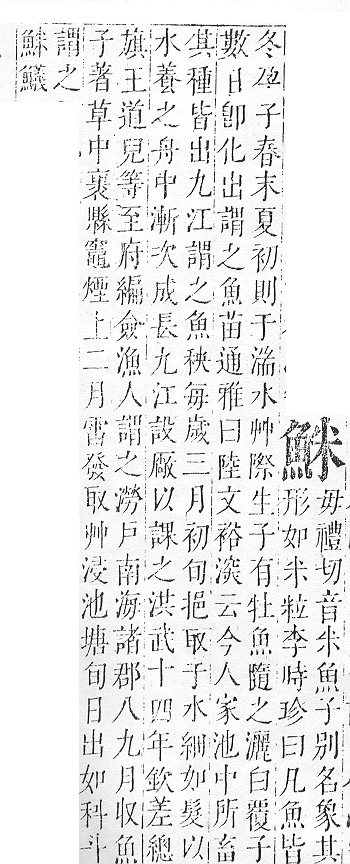 䱊
毋禮切音米魚子別名象其
形如米粒李時珍曰凡魚皆
冬孕子春末夏初則于湍水艸際生子有牡魚隨之灑白覆子
數日卽化出謂之魚苗通雅曰陸文裕深云今人家池中所畜
其種皆出九江謂之魚秧每歲三月初旬挹取于水細如髮以
水養之舟中漸次成長九江設厰以課之洪武十四年欽差總
旗王道兒等至府編僉漁人謂之澇戶南海諸郡八九月收魚
子著草中裹縣竈煙上二月雷發取艸浸池塘旬日出如科斗
謂之
䱊